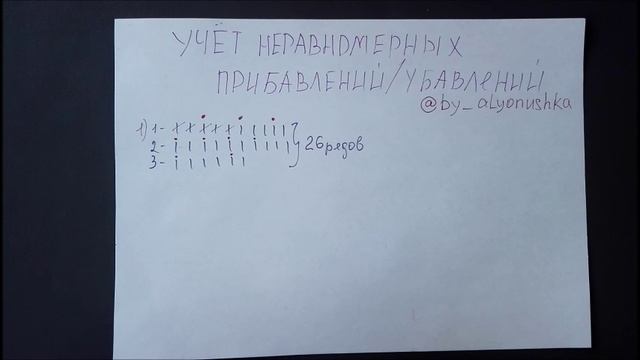 УЧЁТ НЕРАВНОМЕРНЫХ
ПРИБАВЛЕНИЙ/УБАВЛЕНИЙ
@by_alyonushka
1) 1-
2- 26 рядов
3-